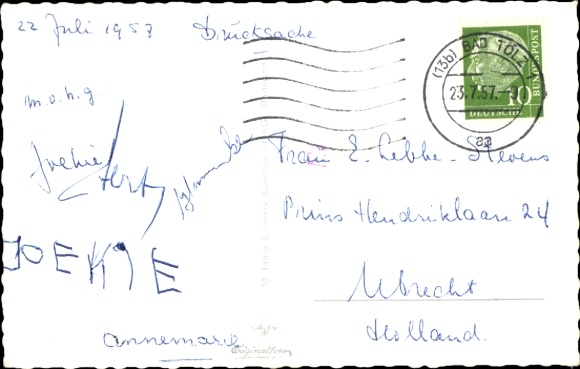 22 Juli 1957 Drucksache
(13b) BAD TÖLZ
23.7.57.
aa
10
DEUTSCHE
BUNDESPOST
m.o.h.g.
JOEKJE
annemarie
Originalfoto
Frau E. Lebbe - Stevens
Prins Hendriklaan 24
Utrecht
Holland.